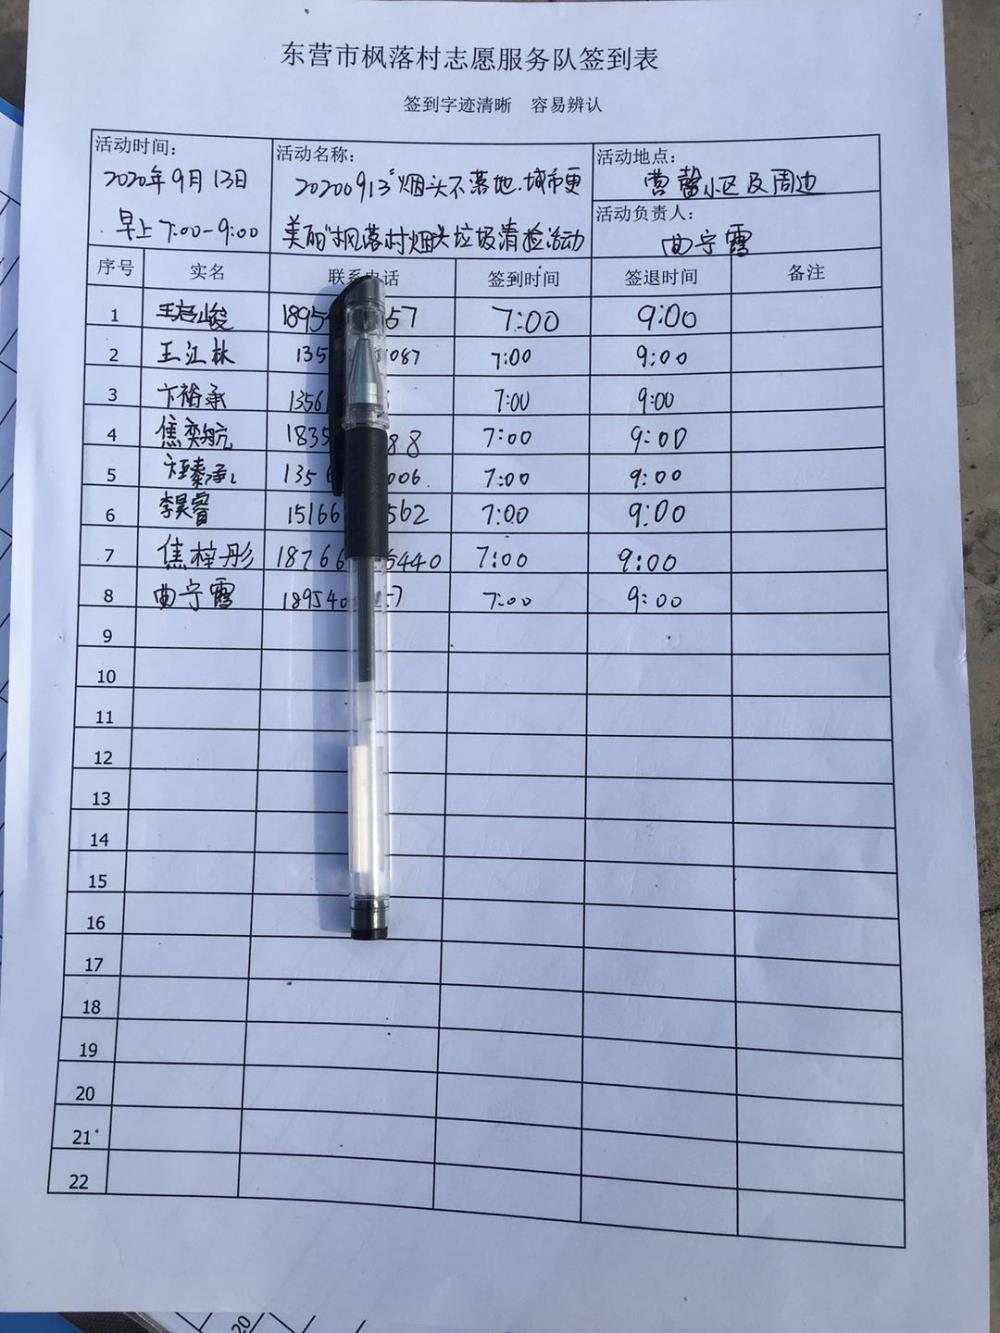 东营市枫落村志愿服务队签到表
签到字迹清晰 容易辨认
活动时间：
2020年9月13日
早上7:00-9:00
活动名称：
20200913“烟头不落地.城市更
美丽”枫落村烟头垃圾清捡活动
活动地点：
营馨小区及周边
活动负责人：
曲宁霞
序号 实名 联系电话 签到时间 签退时间 备注
1 18954 57 7:00 9:00
2 王江林 135 087 7:00 9:00
3 卞裕承 1356 7:00 9:00
4 焦奕航 1835 88 7:00 9:00
5 135 006 7:00 9:00
6 李昊睿 15166 562 7:00 9:00
7 焦梓彤 18766 5440 7:00 9:00
8 曲宁霞 189540 7 7:00 9:00
9
10
11
12
13
14
15
16
17
18
19
20
21
22
20